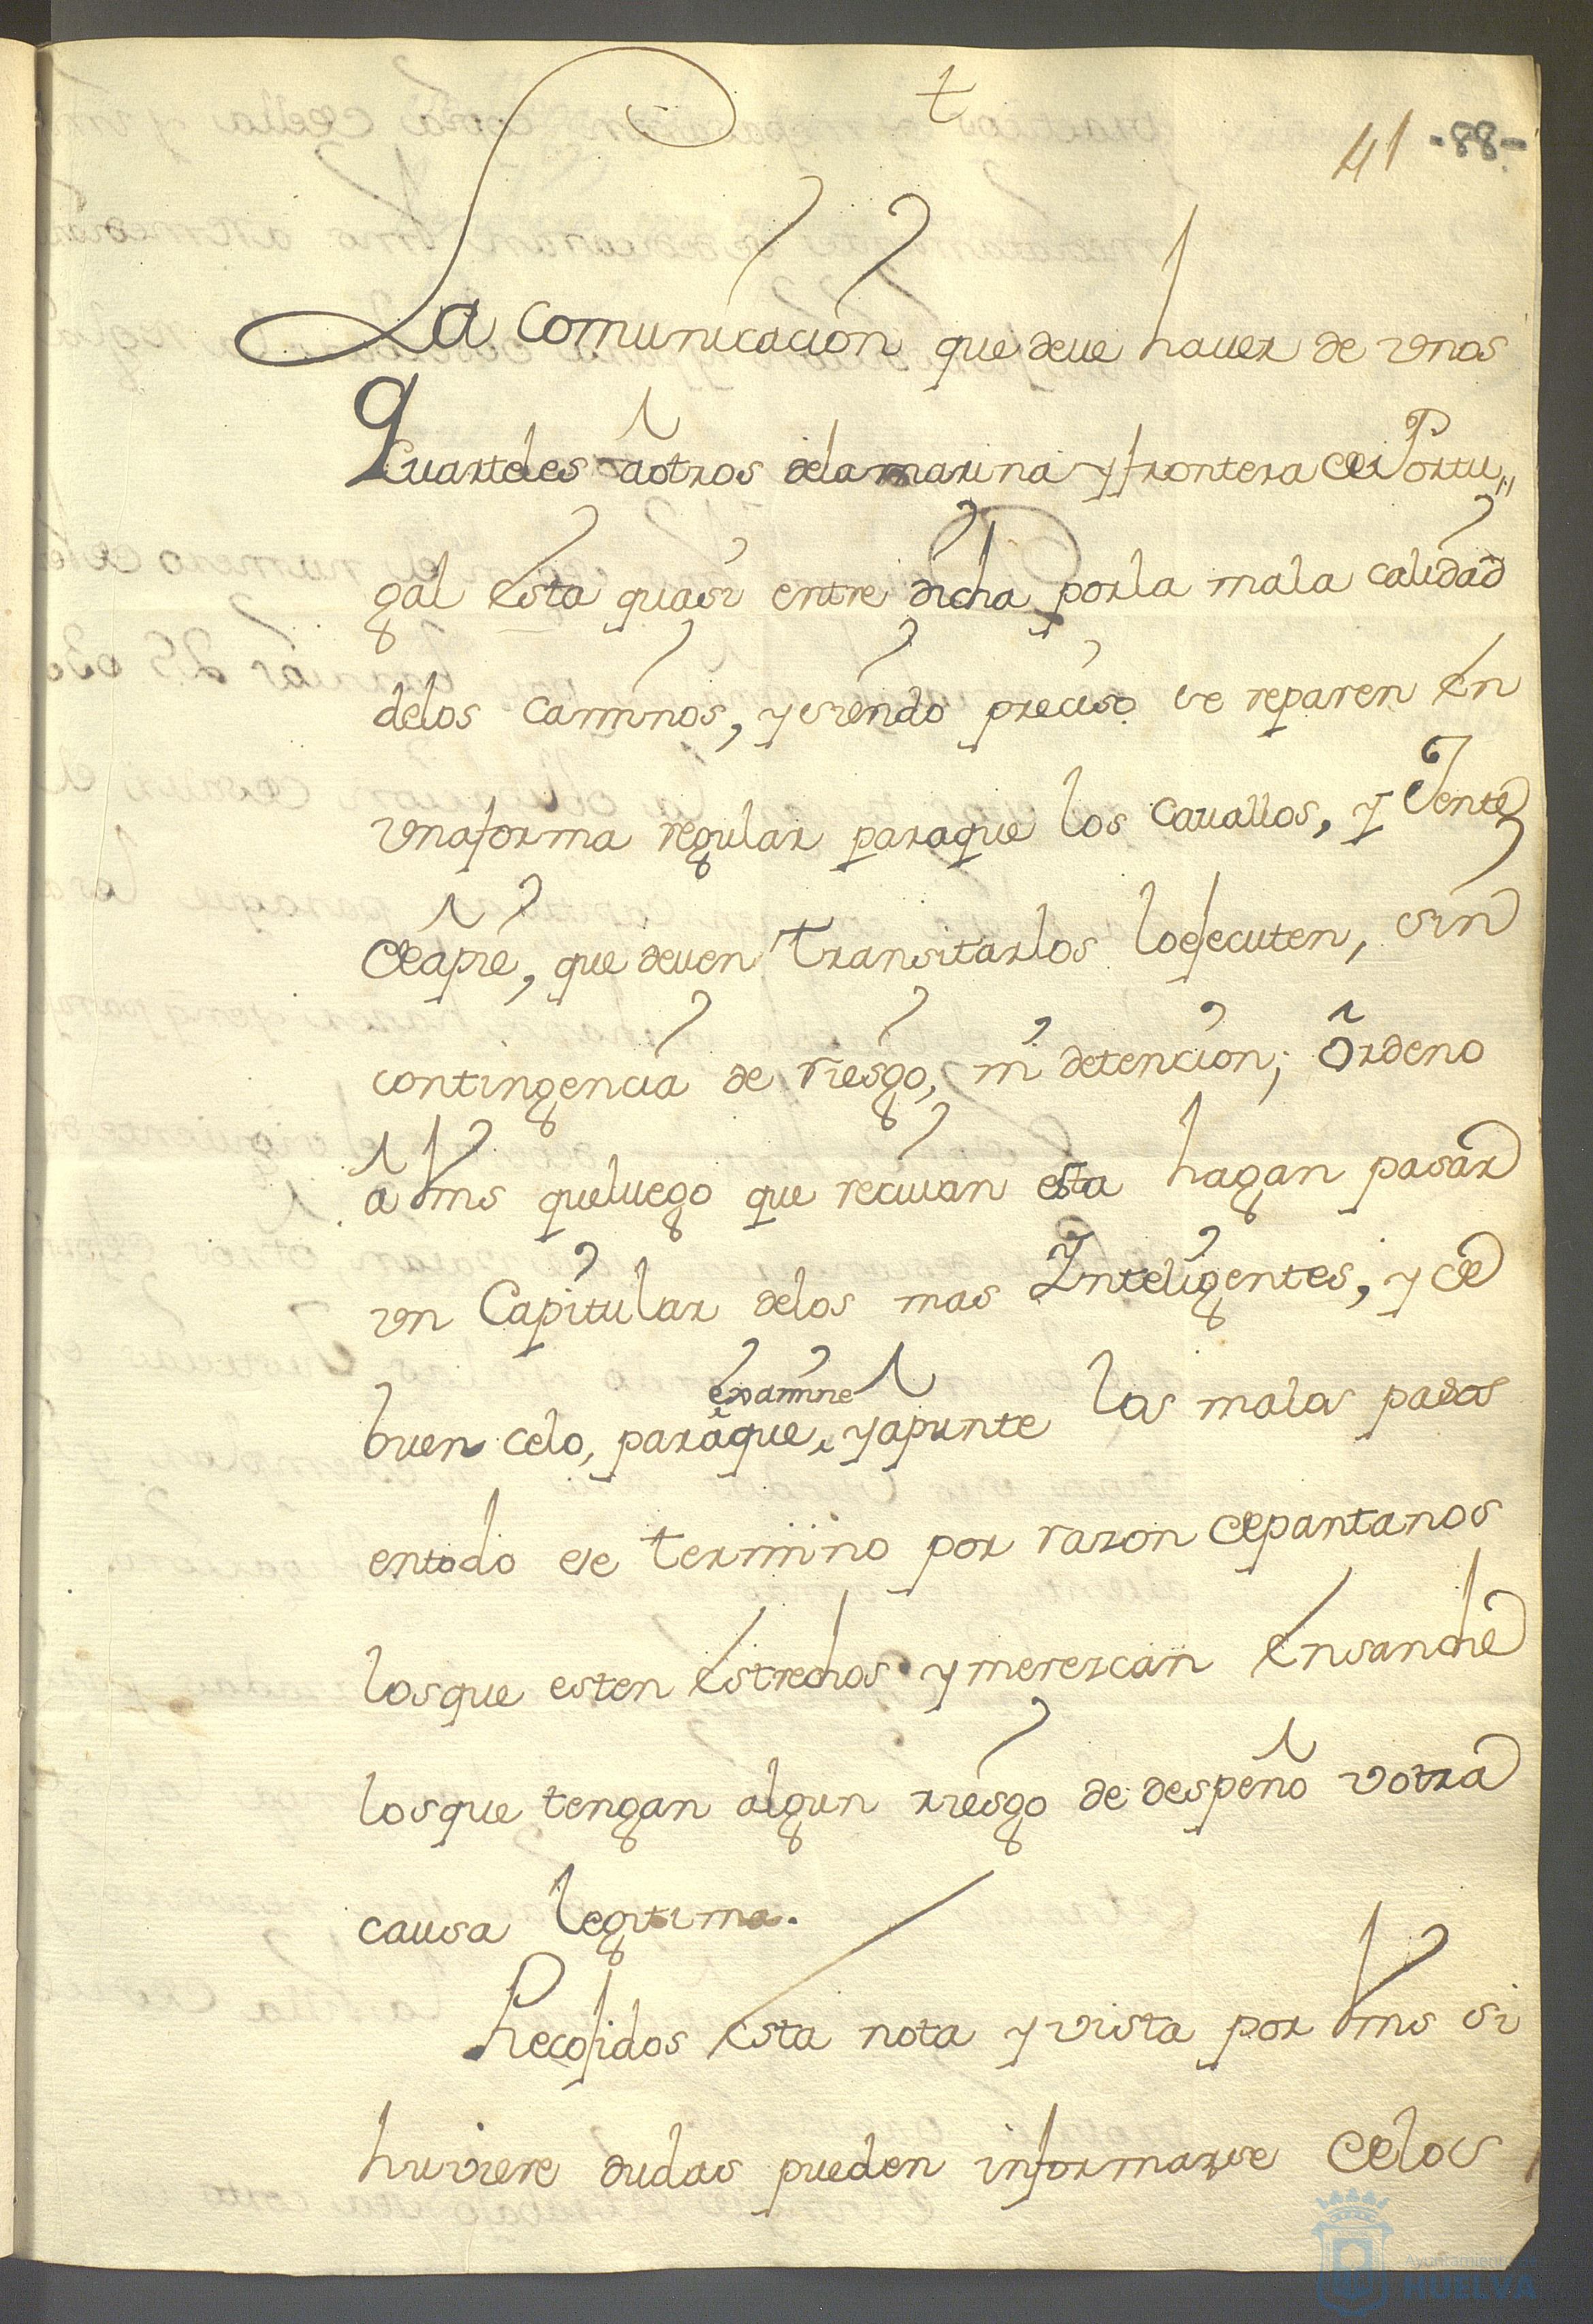 t
41 -88-
La comunicacion que deve haver de unos
Quarteles a otros dela marina y frontera de Portu„
gal esta quasi entre dicha por la mala calidad
delos caminos, y siendo preciso se reparen en
una forma regular paraque los cavallos, y Jente
de apie, que deven transitarlos loejecuten, sin
contingencia de riesgo, ni detencion; Ordeno
a Vms queluego que recivan esta hagan pasar
un Capitular delos mas Inteligentes, y de
buen celo, paraque examine yapunte los malos pasos
entodo ese termino por razon de pantanos
losque esten estrechos y merezcan ensanche
losque tengan algun riesgo de despeño u otra
causa legitima.
Recojidos esta nota y vista por Vms si
huviere dudas pueden informarse delos
Ayuntamiento
HUELVA